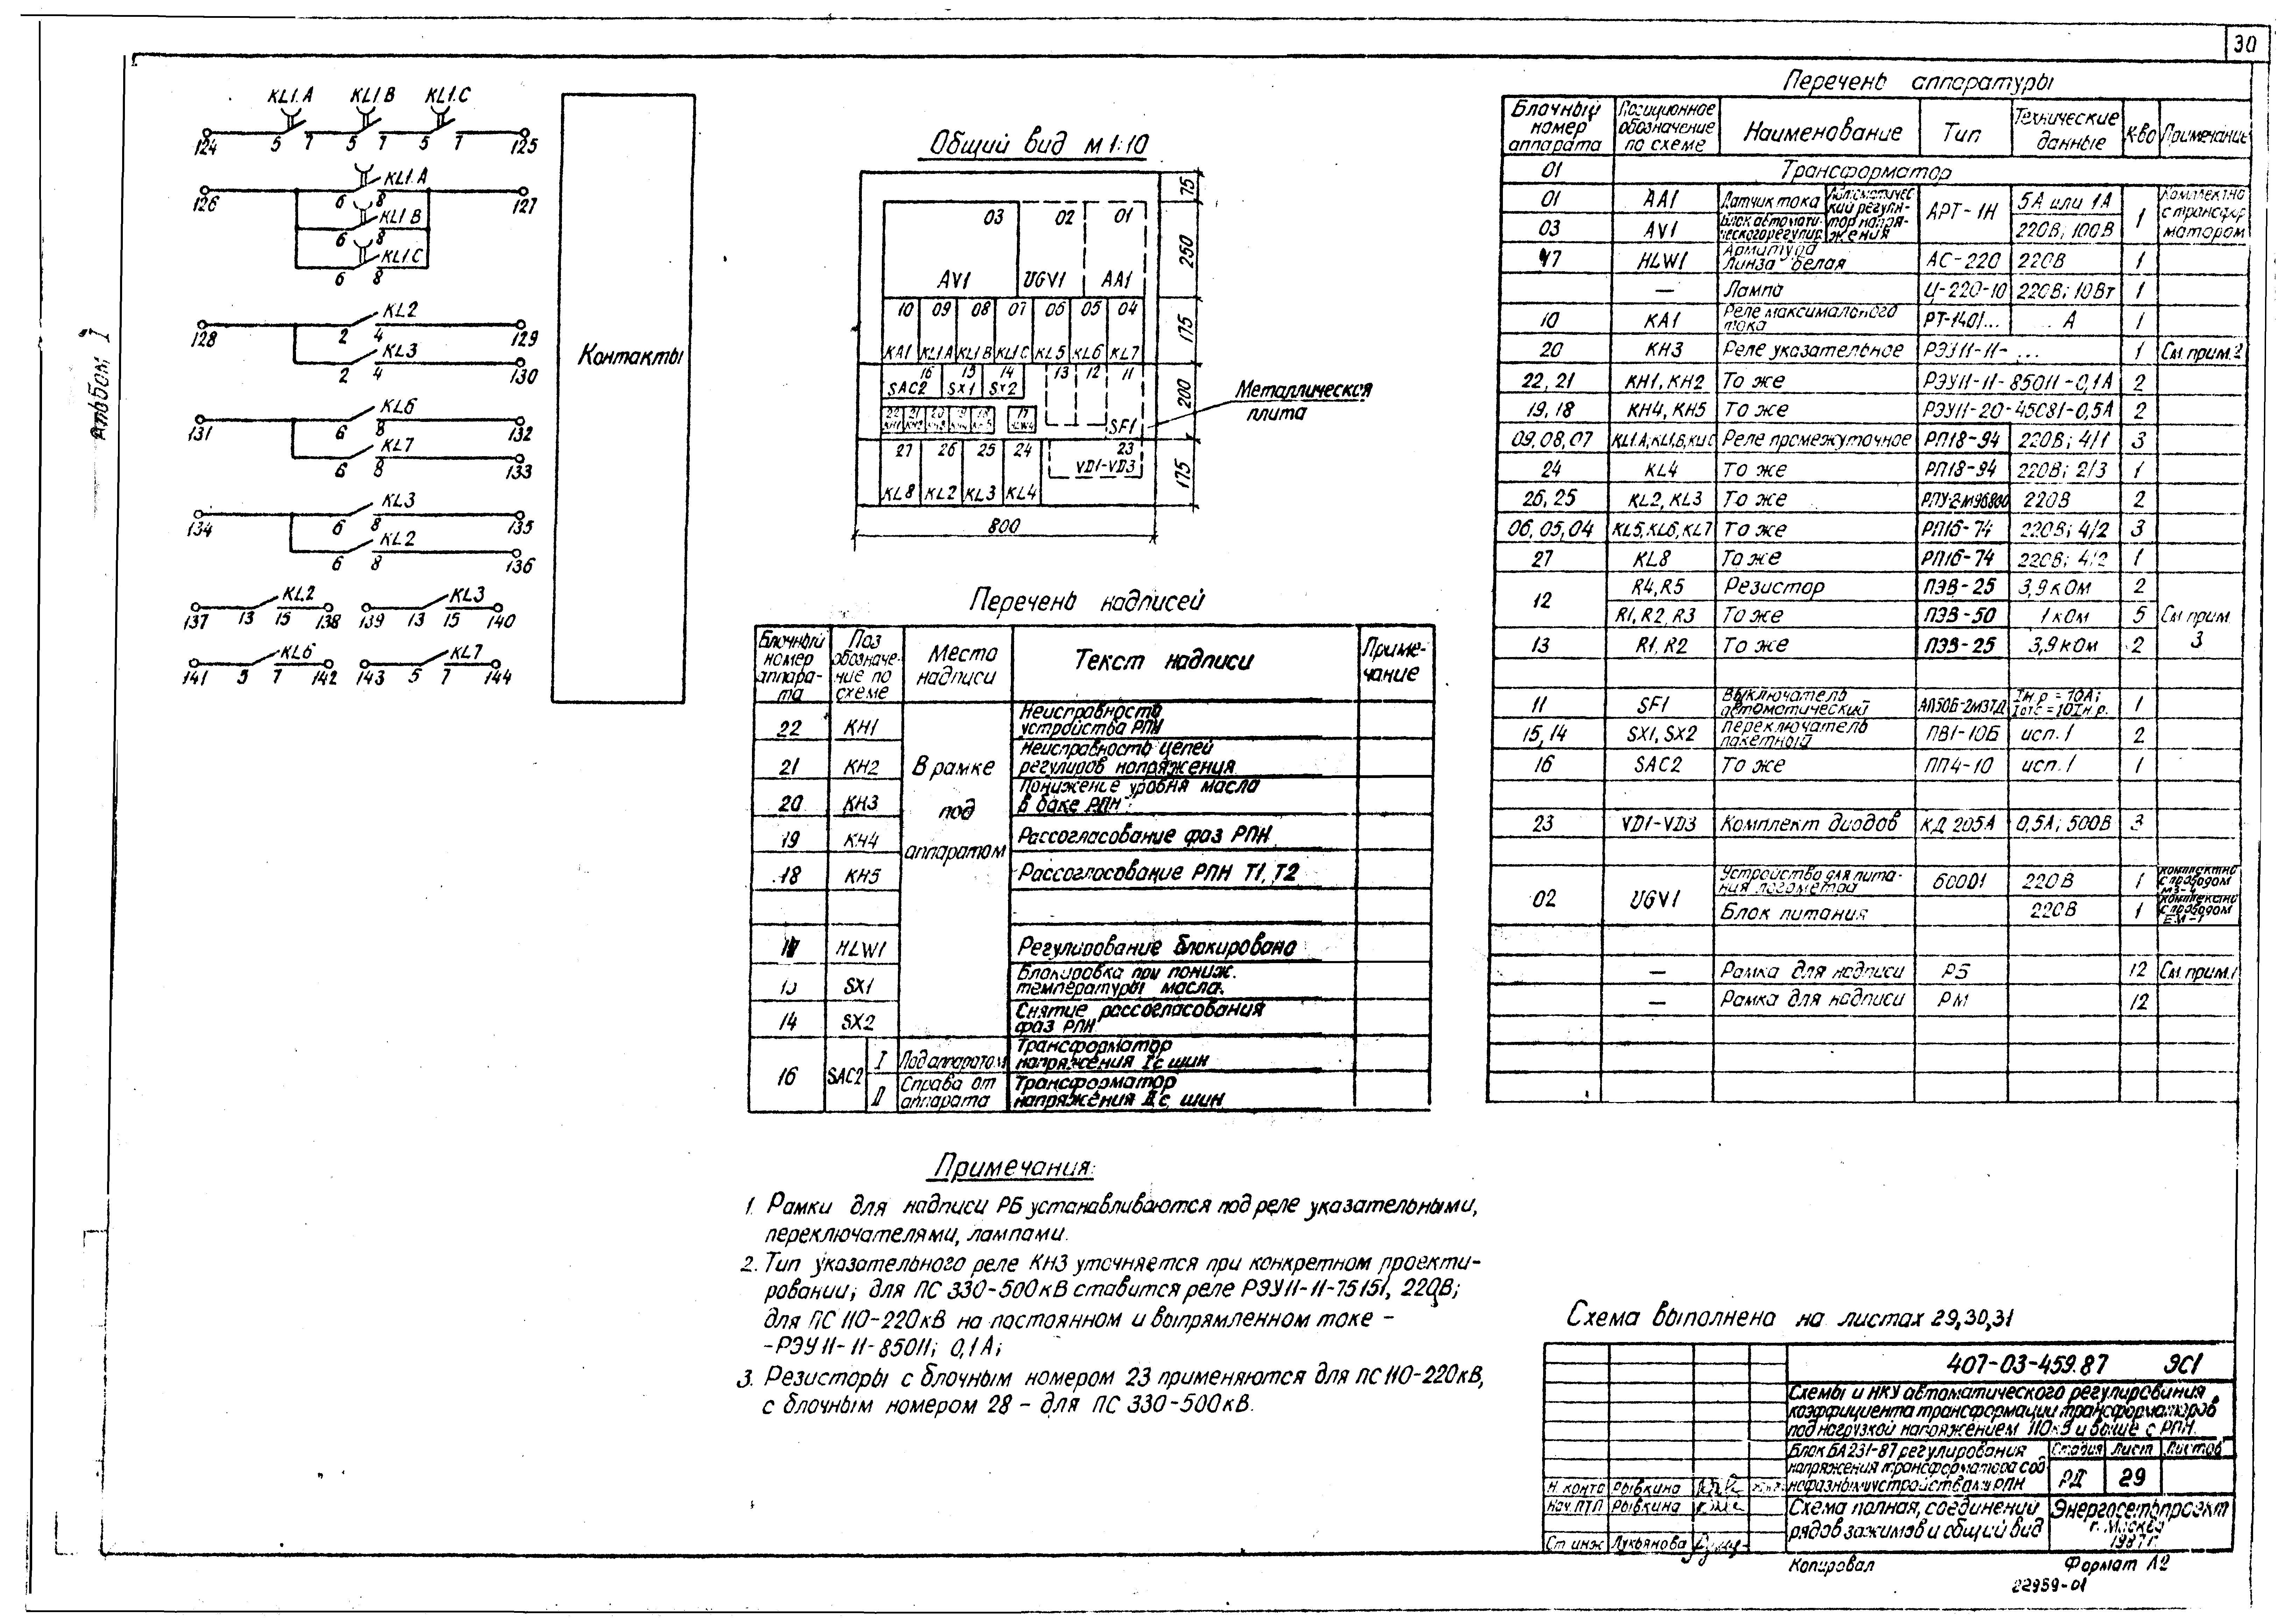 30
Альбом I
KL1.A KL1.B KL1.C
124 5 7 5 7 5 7 125
KL1.A
126 6 8 127
KL1.B
6 8
KL1.C
6 8
KL2
128 2 4 129
KL3
2 4 130
KL6
131 6 8 132
KL7
6 8 133
KL3
134 6 8 135
KL2
6 8 136
KL2 KL3
137 13 15 138 139 13 15 140
KL6 KL7
141 5 7 142 143 5 7 144
Контакты
Общий вид м 1:10
03 02 01
AV1 UGV1 AA1
10 09 08 07 06 05 04
KA1 KL1A KL1B KL1C KL5 KL6 KL7
16 15 14 13 12 11
SAC2 SX1 SX2
22 21 20 19 18 17
KH1 KH2 KH3 KH4 KH5 HLW1
SF1
27 26 25 24 23
VD1-VD3
KL8 KL2 KL3 KL4
800
75
250
175
200
175
Металлическая
плита
Перечень надписей
Блочный номер аппарата Поз обозначение по схеме Место надписи Текст надписи Примечание
22 KH1 Неисправность устройства РПН
21 KH2 Неисправность цепей регулиров напряжения
В рамке под аппаратом
20 KH3 Понижение уровня масла в баке РПН
19 KH4 Рассогласование фаз РПН
18 KH5 Рассогласование РПН Т1, Т2
17 HLW1 Регулирование блокировано
15 SX1 Блокировка при пониж. температуры масла.
14 SX2 Снятие рассогласования фаз РПН
16 SAC2 I Под аппаратом Трансформатор напряжения Iс шин
II Справа от аппарата Трансформатор напряжения IIс шин
Примечания:
1. Рамки для надписи РБ устанавливаются под реле указательными,
переключателями, лампами.
2. Тип указательного реле КН3 уточняется при конкретном проекти-
ровании; для ПС 330-500кВ ставится реле РЭУ11-11-75151, 220В;
для ПС 110-220кВ на постоянном и выпрямленном токе -
-РЭУ11-11-85011; 0,1А;
3. Резисторы с блочным номером 23 применяются для ПС110-220кВ,
с блочным номером 28 - для ПС 330-500кВ.
Перечень аппаратуры
Блочный номер аппарата Позиционное обозначение по схеме Наименование Тип Технические данные К-во Примечание
01 Трансформатор
01 AA1 Датчик тока Автоматический регулятор напряжения АРТ-1Н 5А или 1А 1 Комплектно с трансформатором
03 AV1 Блок автоматического регулир. 220В; 100В
17 HLW1 Арматура Линза белая АС-220 220В 1
— Лампа Ц-220-10 220В; 10Вт 1
10 KA1 Реле максимального тока РТ-140/... А 1
20 KH3 Реле указательное РЭУ11-11-... 1 См. прим. 2
22, 21 KH1, KH2 То же РЭУ11-11-85011-0,1А 2
19, 18 KH4, KH5 То же РЭУ11-20-45081-0,5А 2
09, 08, 07 KL1.A, KL1.B, KL1.C Реле промежуточное РП18-94 220В; 4/1 3
24 KL4 То же РП18-94 220В; 2/3 1
26, 25 KL2, KL3 То же РПУ-2М96800 220В 2
06, 05, 04 KL5, KL6, KL7 То же РП16-74 220В; 4/2 3
27 KL8 То же РП16-74 220В; 4/2 1
12 R4, R5 Резистор ПЭВ-25 3,9 кОм 2
R1, R2, R3 То же ПЭВ-50 1 кОм 5 См прим. 3
13 R1, R2 То же ПЭВ-25 3,9 кОм 2
11 SF1 Выключатель автоматический АП50Б-2М3ТД Iн.р = 10А; Iотс = 10Iн.р. 1
15, 14 SX1, SX2 Переключатель пакетный ПВ1-10Б исп. 1 2
16 SAC2 То же ПП4-10 исп. 1 1
23 VD1-VD3 Комплект диодов КД 205А 0,5А; 500В 3
02 UGV1 Устройство для питания логометра 60001 220В 1 комплектно с приводом МЗ-4
Блок питания 220В 1 комплектно с приводом ЕМ-1
— Рамка для надписи РБ 12 См. прим. 1
— Рамка для надписи РМ 12
Схема выполнена на листах 29,30,31
407-03-459.87 ЭС1
Схемы и НКУ автоматического регулирования
коэффициента трансформации трансформаторов
под нагрузкой напряжением 110кВ и выше с РПН.
Блок БА231-87 регулирования
напряжения трансформатора с од-
нофазными устройствами РПН
Стадия Лист Листов
РД 29
Н контр Рывкина
Нач. ПТП Рывкина
Ст инж Лукьянова
Схема полная, соединений
рядов зажимов и общий вид
Энергосетьпроект
г. Москва
1987г.
Копировал Формат А2
22959-01